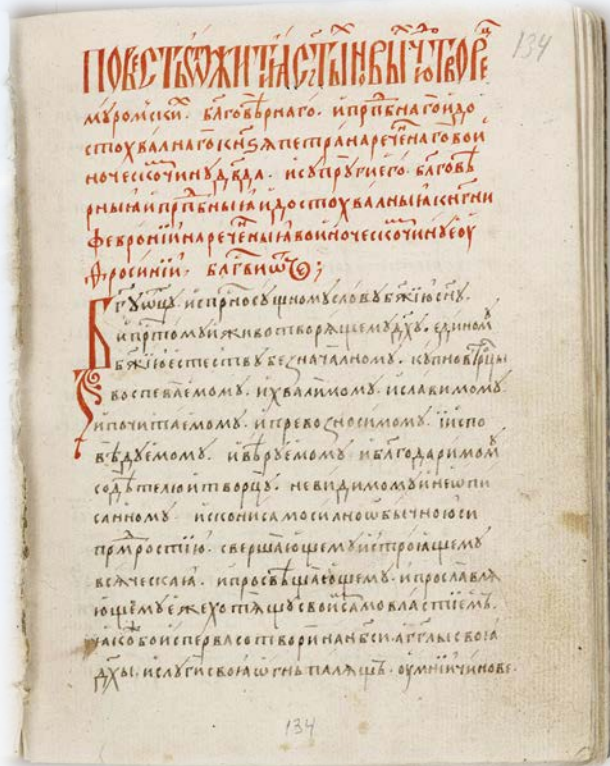 134
ПОВЕСТЬ Ѿ ЖИТIА СТ҃Ыⷯ НОВЫⷯ ЧЮⷣТВОРЕⷰ
мꙋромскиⷯ. бл҃говѣрнаго. и прпⷣбнаго и до
стохвалнаго кн҃ѕѧ петра нареченаго во и
ноческоⷨ чинꙋ дв҃да. и сꙋпрꙋги его. бл҃говѣ
рныꙗ и прпⷣбныꙗ и достохвалныꙗ кнг҃ни
феврониї нареченыꙗ во иноческоⷨ чинꙋ еѵ
фросиниї. бл҃гви ѿч҃е;
Бг҃ꙋ ѿцꙋ. и спрⷭносꙋщномꙋ словꙋ бж҃їю сн҃ꙋ.
и прⷭтомꙋ и животворѧщемꙋ дх҃ꙋ. единомꙋ
бж҃їю естествꙋ безначалномꙋ. кꙋпно в трⷪцы
воспеваемомꙋ. и хвалимомꙋ. и славимомꙋ.
и почитаемомꙋ. и превозносимомꙋ. їиспо
вѣдꙋемомꙋ. и вѣрꙋемомꙋ и бл҃годаримомꙋ
содѣтелю и творцꙋ. невидимомꙋ и неѡпи
санномꙋ. искони самосиꙗно ѡбычною си
прⷨдростїю. свершающемꙋ и строꙗщемꙋ
всѧческаꙗ. и просвѣщающемꙋ. и прославлѧ
ющемꙋ еже хотѧщꙋ своиⷨ самовластїемъ.
ꙗко бо исперва сотвори на нб҃си. агг҃лы своꙗ
дх҃ы. и слꙋги своꙗ ѡгнь палѧщъ. ѹмнїи чинове.
134